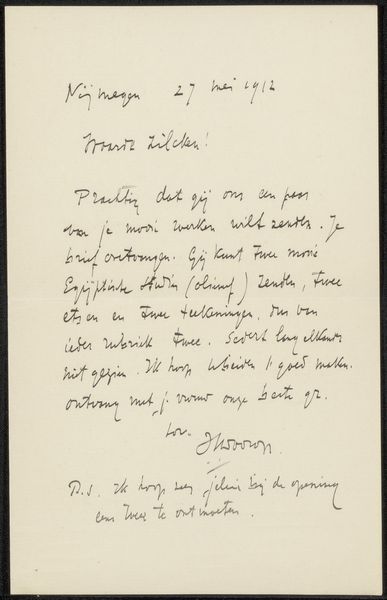 Nijmegen 27 mei 1912
Waarde Zilcken!
Prachtig dat gij ons een paar
van je mooie werken wilt zenden. Je
brief ontvangen. Gij kunt twee mooie
Egyptische Studies (olieverf) zenden, twee
etsen en twee teekeningen, dus van
ieder rubriek twee. Sedert lang elkander
niet gezien. Ik hoop beiden 't goed maken.
ontvang met je vrouw onze beste gr.
tov.
JThToorop
P.S. Ik hoop zeer jelui bij de opening
eens weer te ontmoeten.